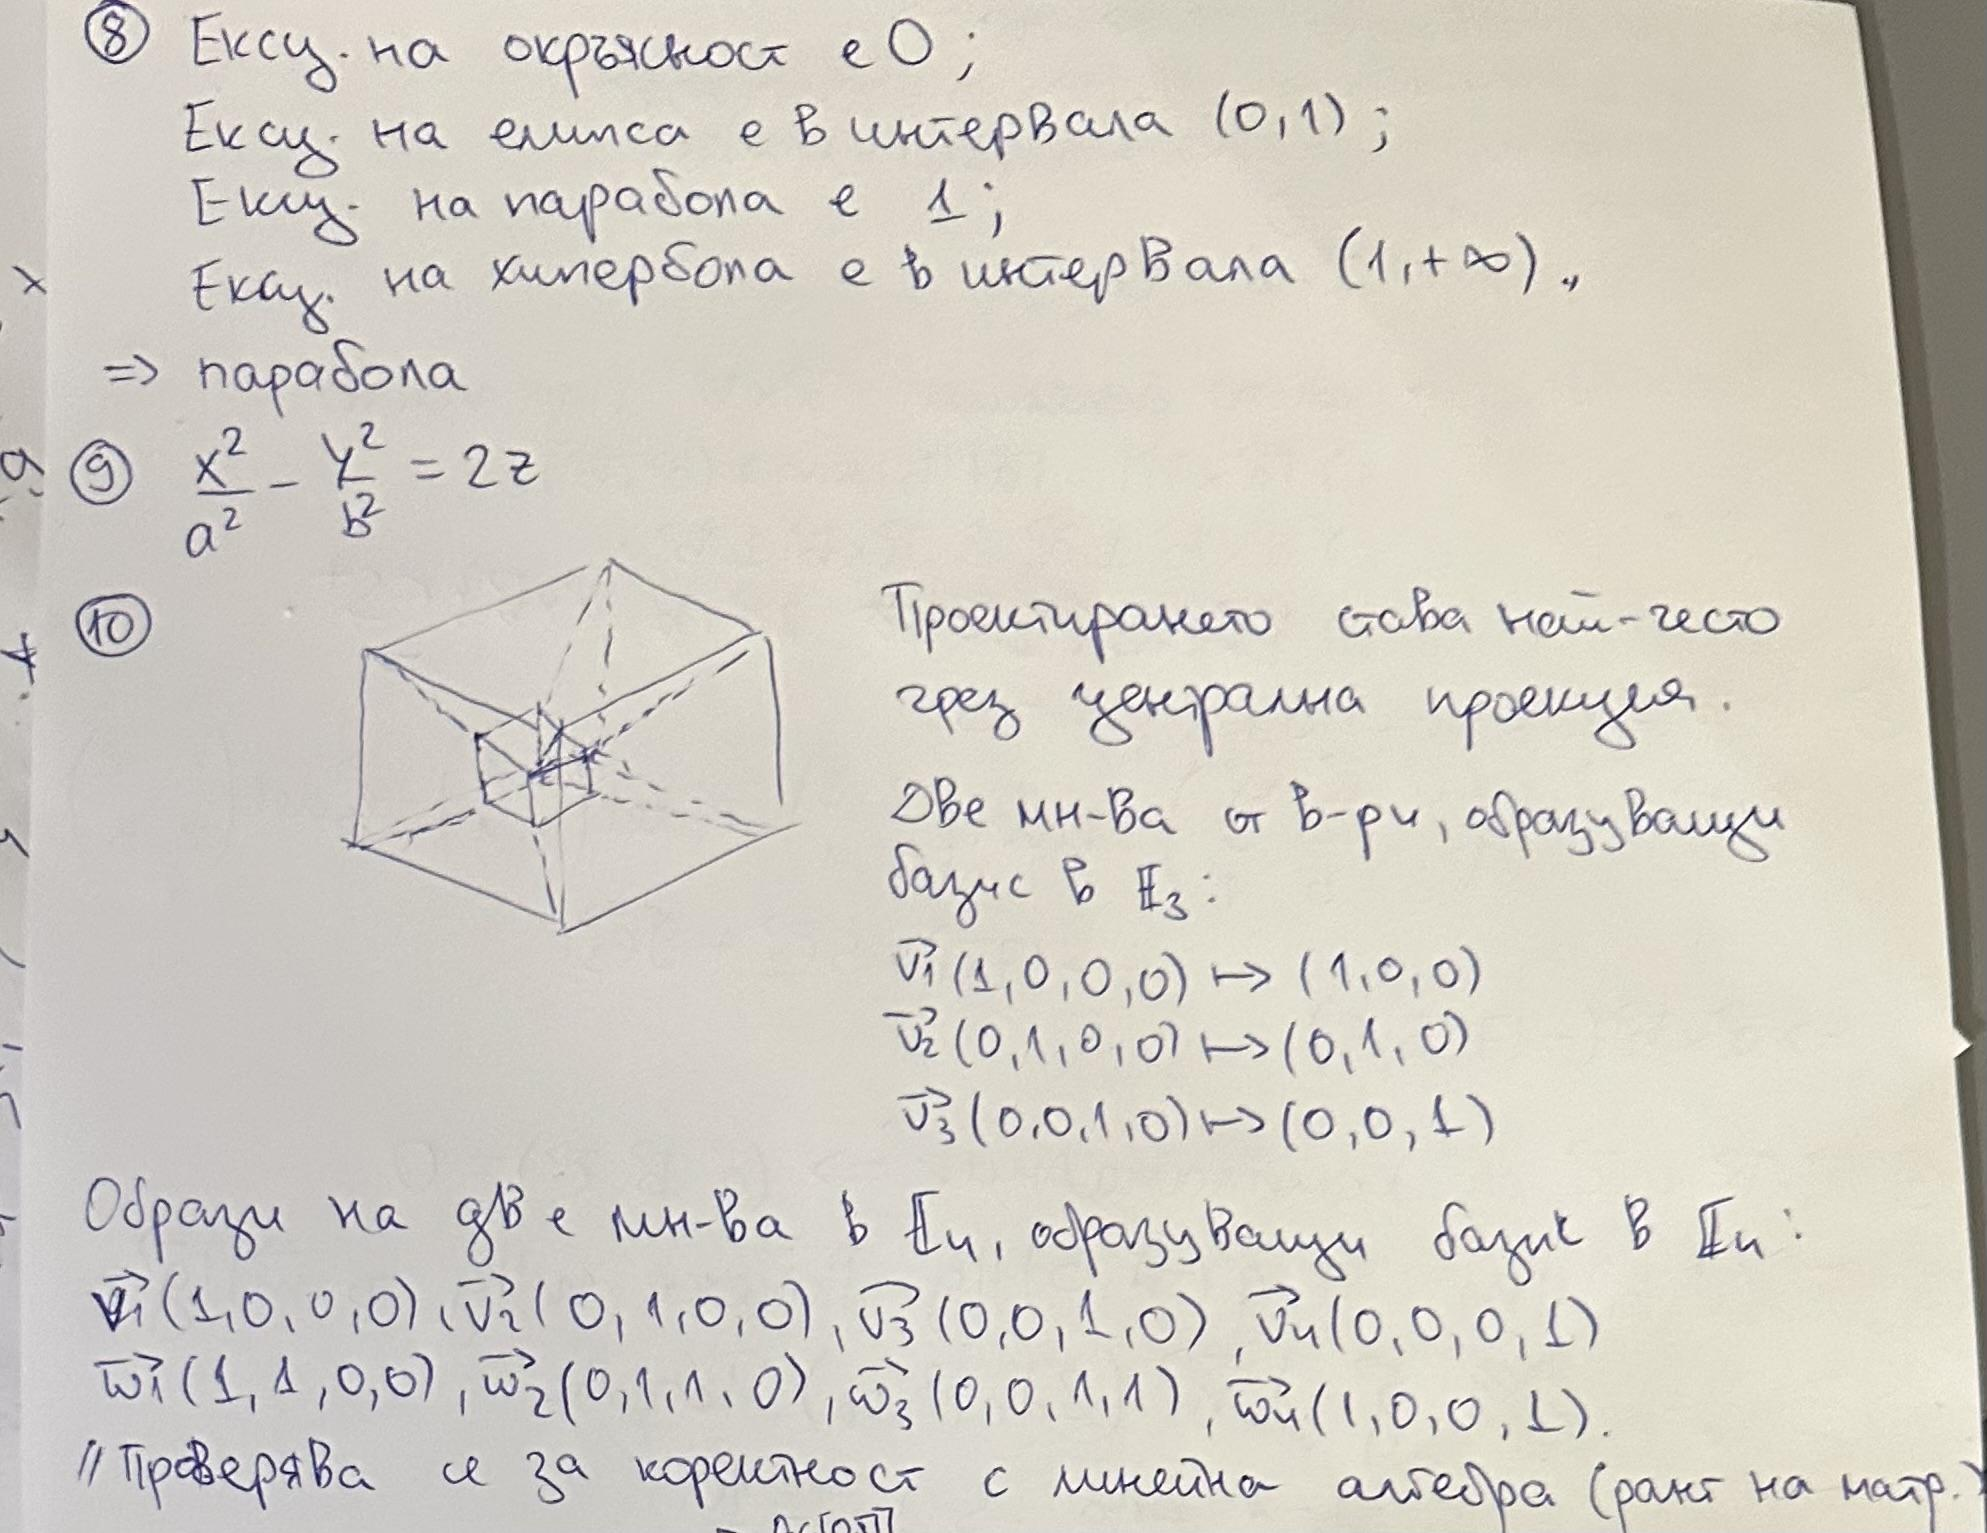 ⑧ Ексц. на окръжност е 0;
Ексц. на елипса е в интервала (0,1);
Ексц. на парабола е 1;
Ексц. на хипербола е в интервала (1,+∞).
=> парабола
⑨ x²/a² - y²/b² = 2z
⑩
Проектирането става най-често
чрез централна проекция.
Две мн-ва от в-ри, образуващи
базис в E₃:
v₁(1,0,0,0) ↦ (1,0,0)
v₂(0,1,0,0) ↦ (0,1,0)
v₃(0,0,1,0) ↦ (0,0,1)
Образи на две мн-ва в E₄, образуващи базис в E₄:
v₁(1,0,0,0), v₂(0,1,0,0), v₃(0,0,1,0), v₄(0,0,0,1)
w₁(1,1,0,0), w₂(0,1,1,0), w₃(0,0,1,1), w₄(1,0,0,1).
// Проверява се за коректност с линейна алгебра (ранг на матр.)